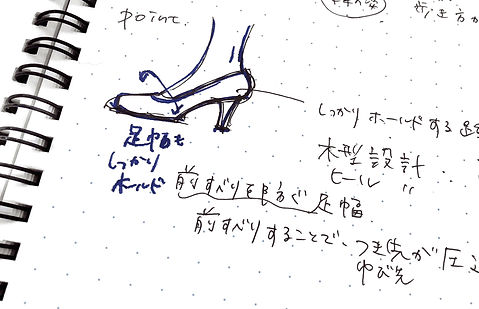 point.
行き方が
しっかり ホールドする 足
木型設計
ヒール 〃
足幅も
しっかり
ホールド
前すべりを防ぐ 足幅
前すべりすることで、つま先が圧
ゆび先